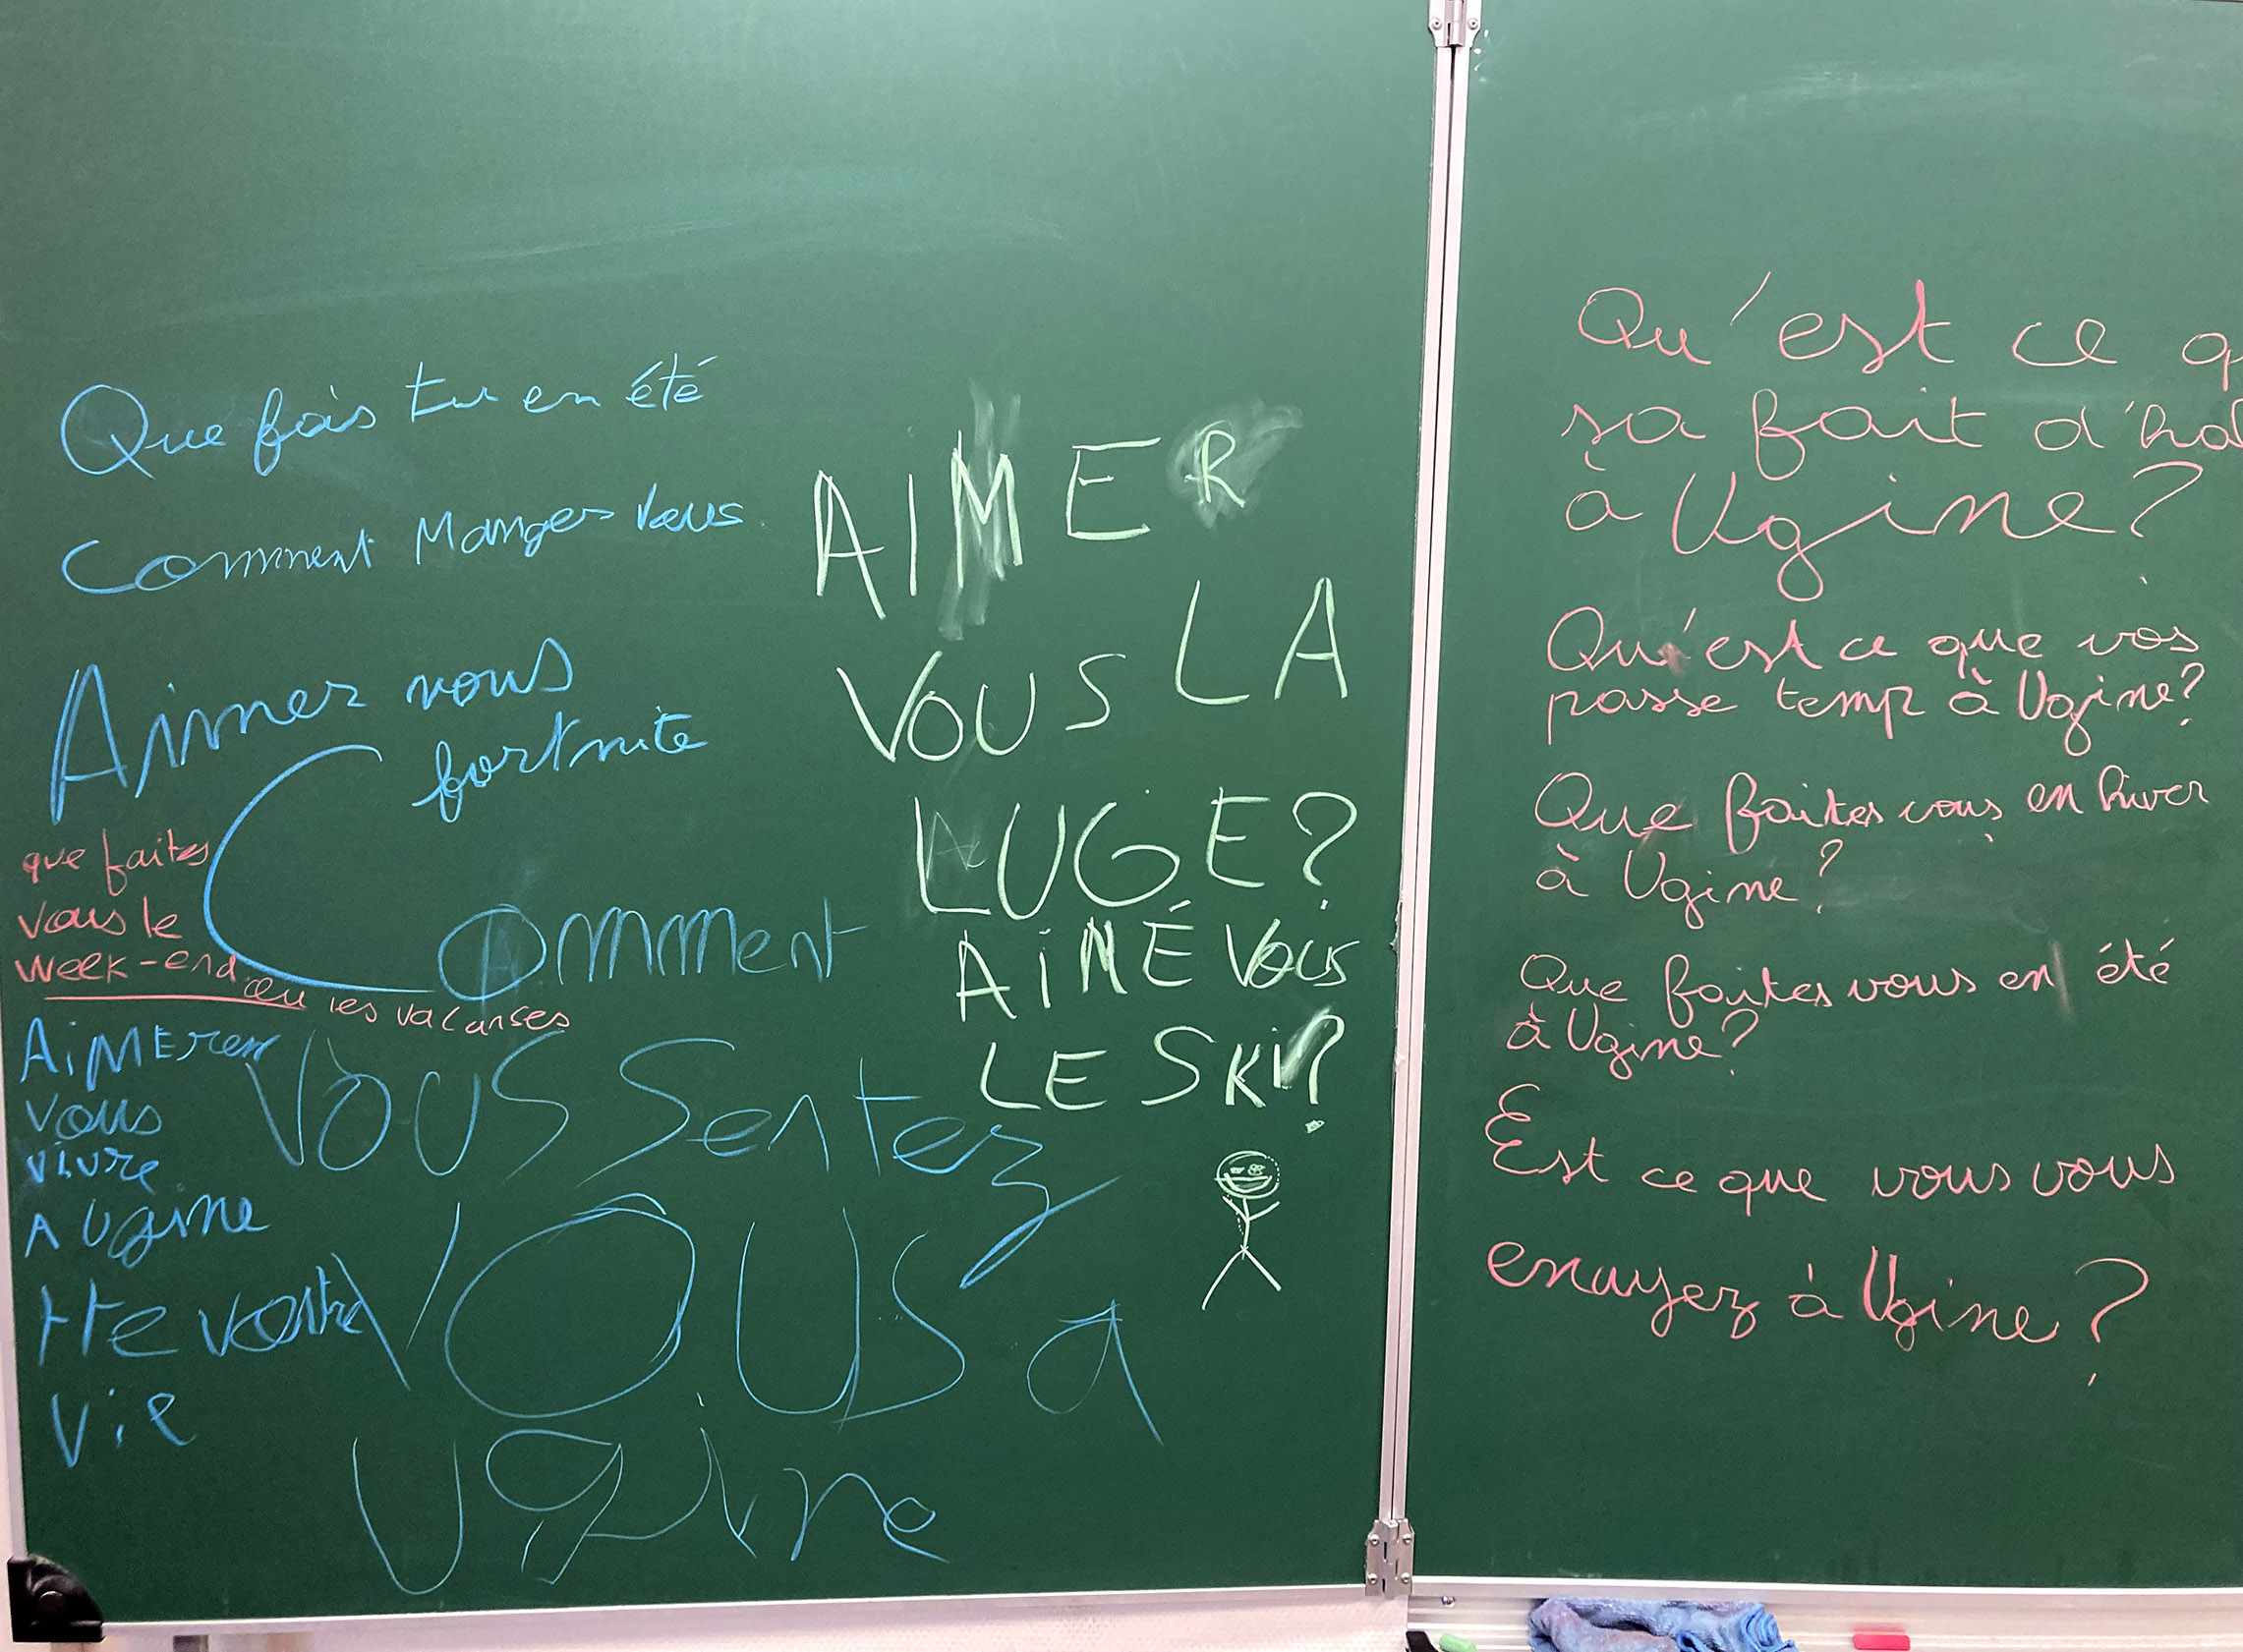 Que fais tu en été
Comment Manger vous
Aimer vous
fortnite
que faites
vous le
week-end ou les vacanses
Comment
VOUS Sentez
VOUS a
Ugine
AiMEren
Vous
vivre
A Ugine
Vie
AIMER
VOUS LA
LUGE?
AiMÉ Vous
LE SKi?
Qu'est ce q
sa fait d'hab
à Ugine?
Qu'est ce que vos
passe temp à Ugine?
Que faites vous en hiver
à Ugine?
Que faites vous en été
à Ugine?
Est ce que vous vous
enuyez à Ugine?